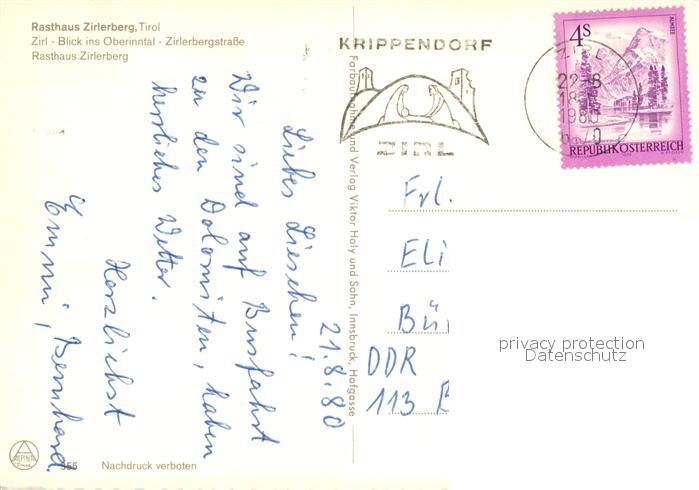 Rasthaus Zirlerberg, Tirol
Zirl - Blick ins Oberinntal - Zirlerbergstraße
Rasthaus Zirlerberg
21.8.80
Liebes Lieschen!
Wir sind auf Busfahrt
zu den Dolomiten, haben
herrliches Wetter.
Herzlichst
Emmi, Bernhard.
355 Nachdruck verboten
ALPINA
Farbaufnahme und Verlag Viktor Holy und Sohn, Innsbruck, Hofgasse
KRIPPENDORF
ZIRL
ZIRL
22-8
18
1980
6170
4S
ALMSEE
REPUBLIK ÖSTERREICH
Frl.
Eli
Bü
DDR
113
privacy protection
Datenschutz